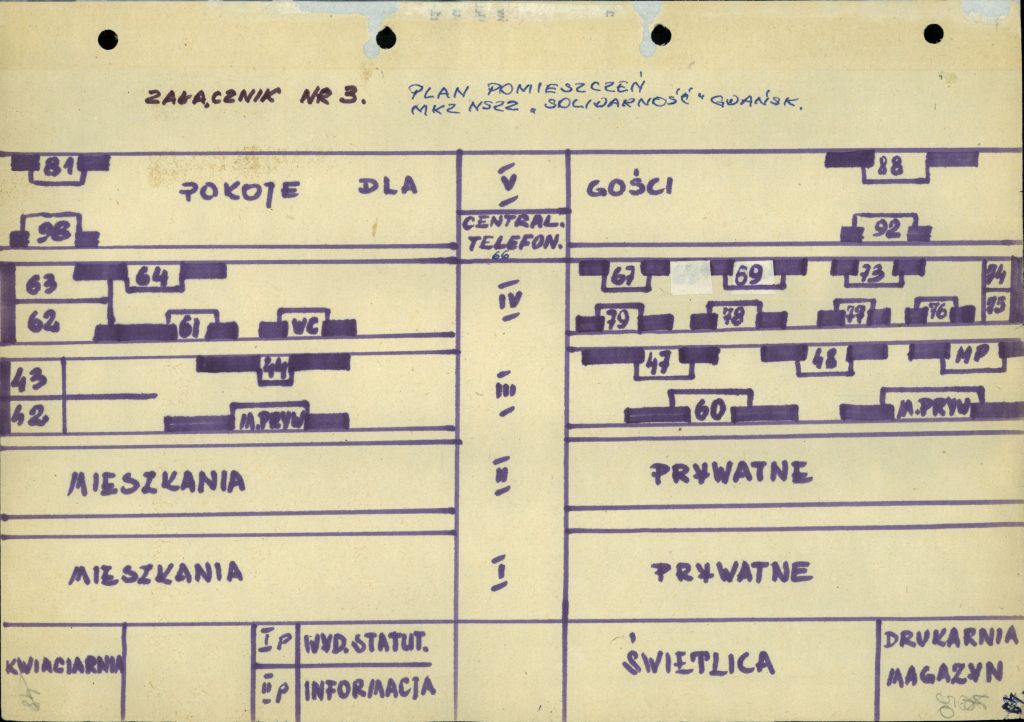 ZAŁĄCZNIK NR 3.
PLAN POMIESZCZEŃ
MKZ NSZZ „SOLIDARNOŚĆ" GDAŃSK.
81
POKOJE DLA
V
GOŚCI
88
98
CENTRAL.
TELEFON.
66
92
63
64
IV
67
69
73
74
62
61
WC
79
78
77
76
75
43
44
III
47
48
MP
42
M.PRYW
60
M.PRYW
MIESZKANIA
II
PRYWATNE
MIESZKANIA
I
PRYWATNE
KWIACIARNIA
I P
WYD. STATUT.
II P
INFORMACJA
ŚWIETLICA
DRUKARNIA
MAGAZYN